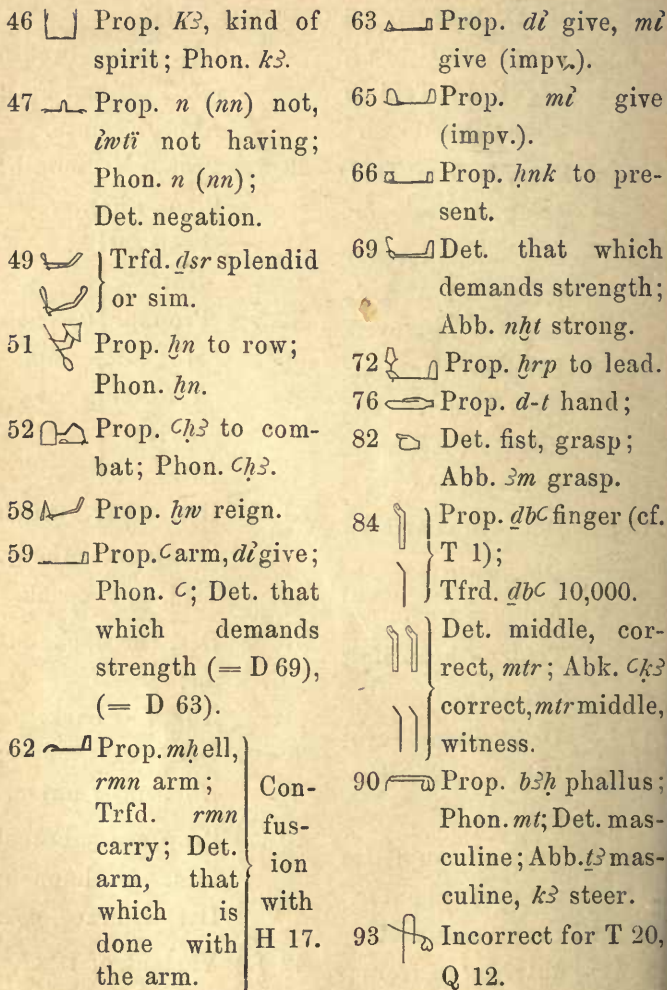 46 Prop. K3, kind of
spirit; Phon. k3.
47 Prop. n (nn) not,
iwtï not having;
Phon. n (nn);
Det. negation.
49 Trfd. ḏsr splendid
or sim.
51 Prop. ẖn to row;
Phon. ẖn.
52 Prop. Ꜥḥ3 to com-
bat; Phon. Ꜥḥ3.
58 Prop. ḫw reign.
59 Prop. Ꜥ arm, di give;
Phon. Ꜥ; Det. that
which demands
strength (= D 69),
(= D 63).
62 Prop. mḥ ell,
rmn arm;
Trfd. rmn
carry; Det.
arm, that
which is
done with
the arm.
Con-
fus-
ion
with
H 17.
63 Prop. di give, mi
give (impv.).
65 Prop. mi give
(impv.).
66 Prop. ḥnk to pre-
sent.
69 Det. that which
demands strength;
Abb. nḫt strong.
72 Prop. ḫrp to lead.
76 Prop. d-t hand;
82 Det. fist, grasp;
Abb. 3m grasp.
84 Prop. ḏbꜤ finger (cf.
T 1);
Tfrd. ḏbꜤ 10,000.
Det. middle, cor-
rect, mtr; Abk. Ꜥḳ3
correct, mtr middle,
witness.
90 Prop. b3ḥ phallus;
Phon. mt; Det. mas-
culine; Abb. ṯ3 mas-
culine, k3 steer.
93 Incorrect for T 20,
Q 12.